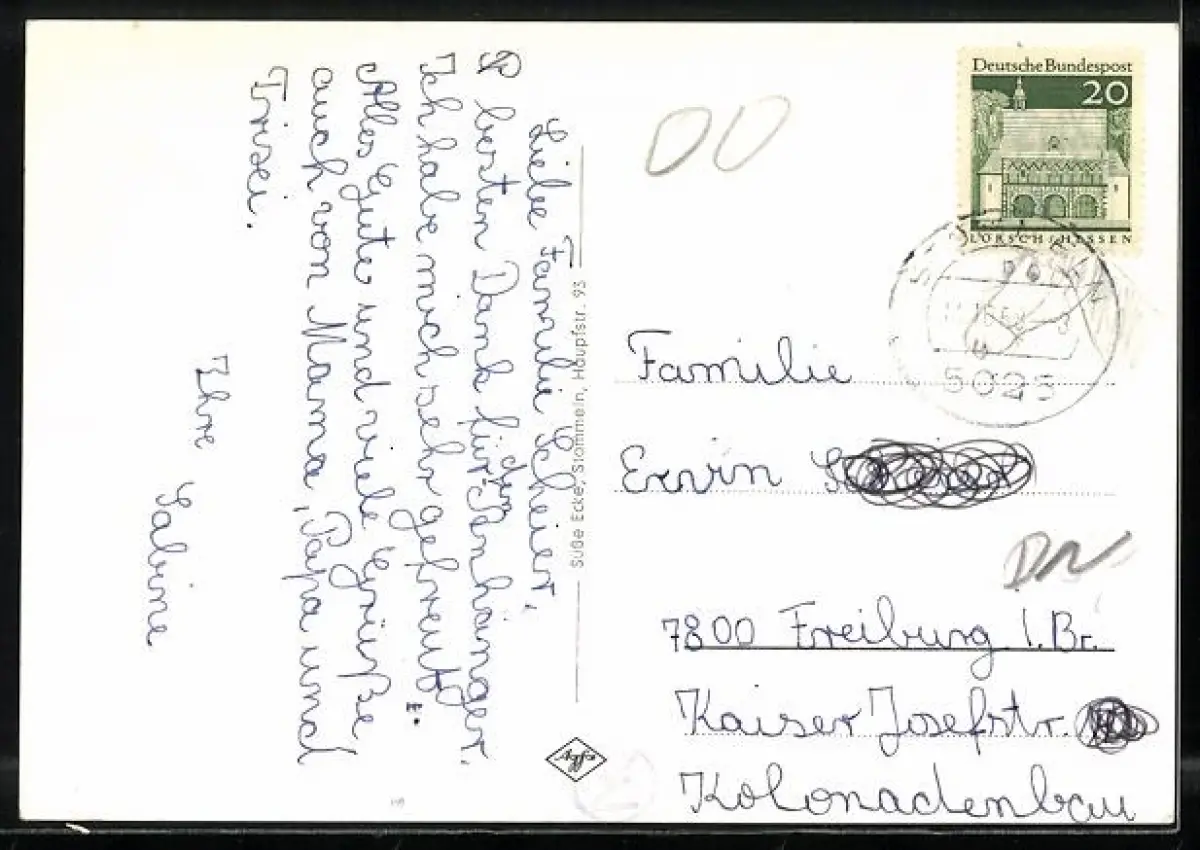 Liebe Familie Scheier,
besten Dank für den Anhänger.
Ich habe mich sehr gefreut.
Alles Gute und viele Grüße
auch von Mama, Papa und
Trixi.
Ihre
Sabine
Süße Ecke, Stommeln, Hauptstr. 93
Deutsche Bundespost
20
LORSCH/HESSEN
5025
Familie
Erwin
7800 Freiburg i. Br.
Kaiser Josefstr.
Kolonadenbau